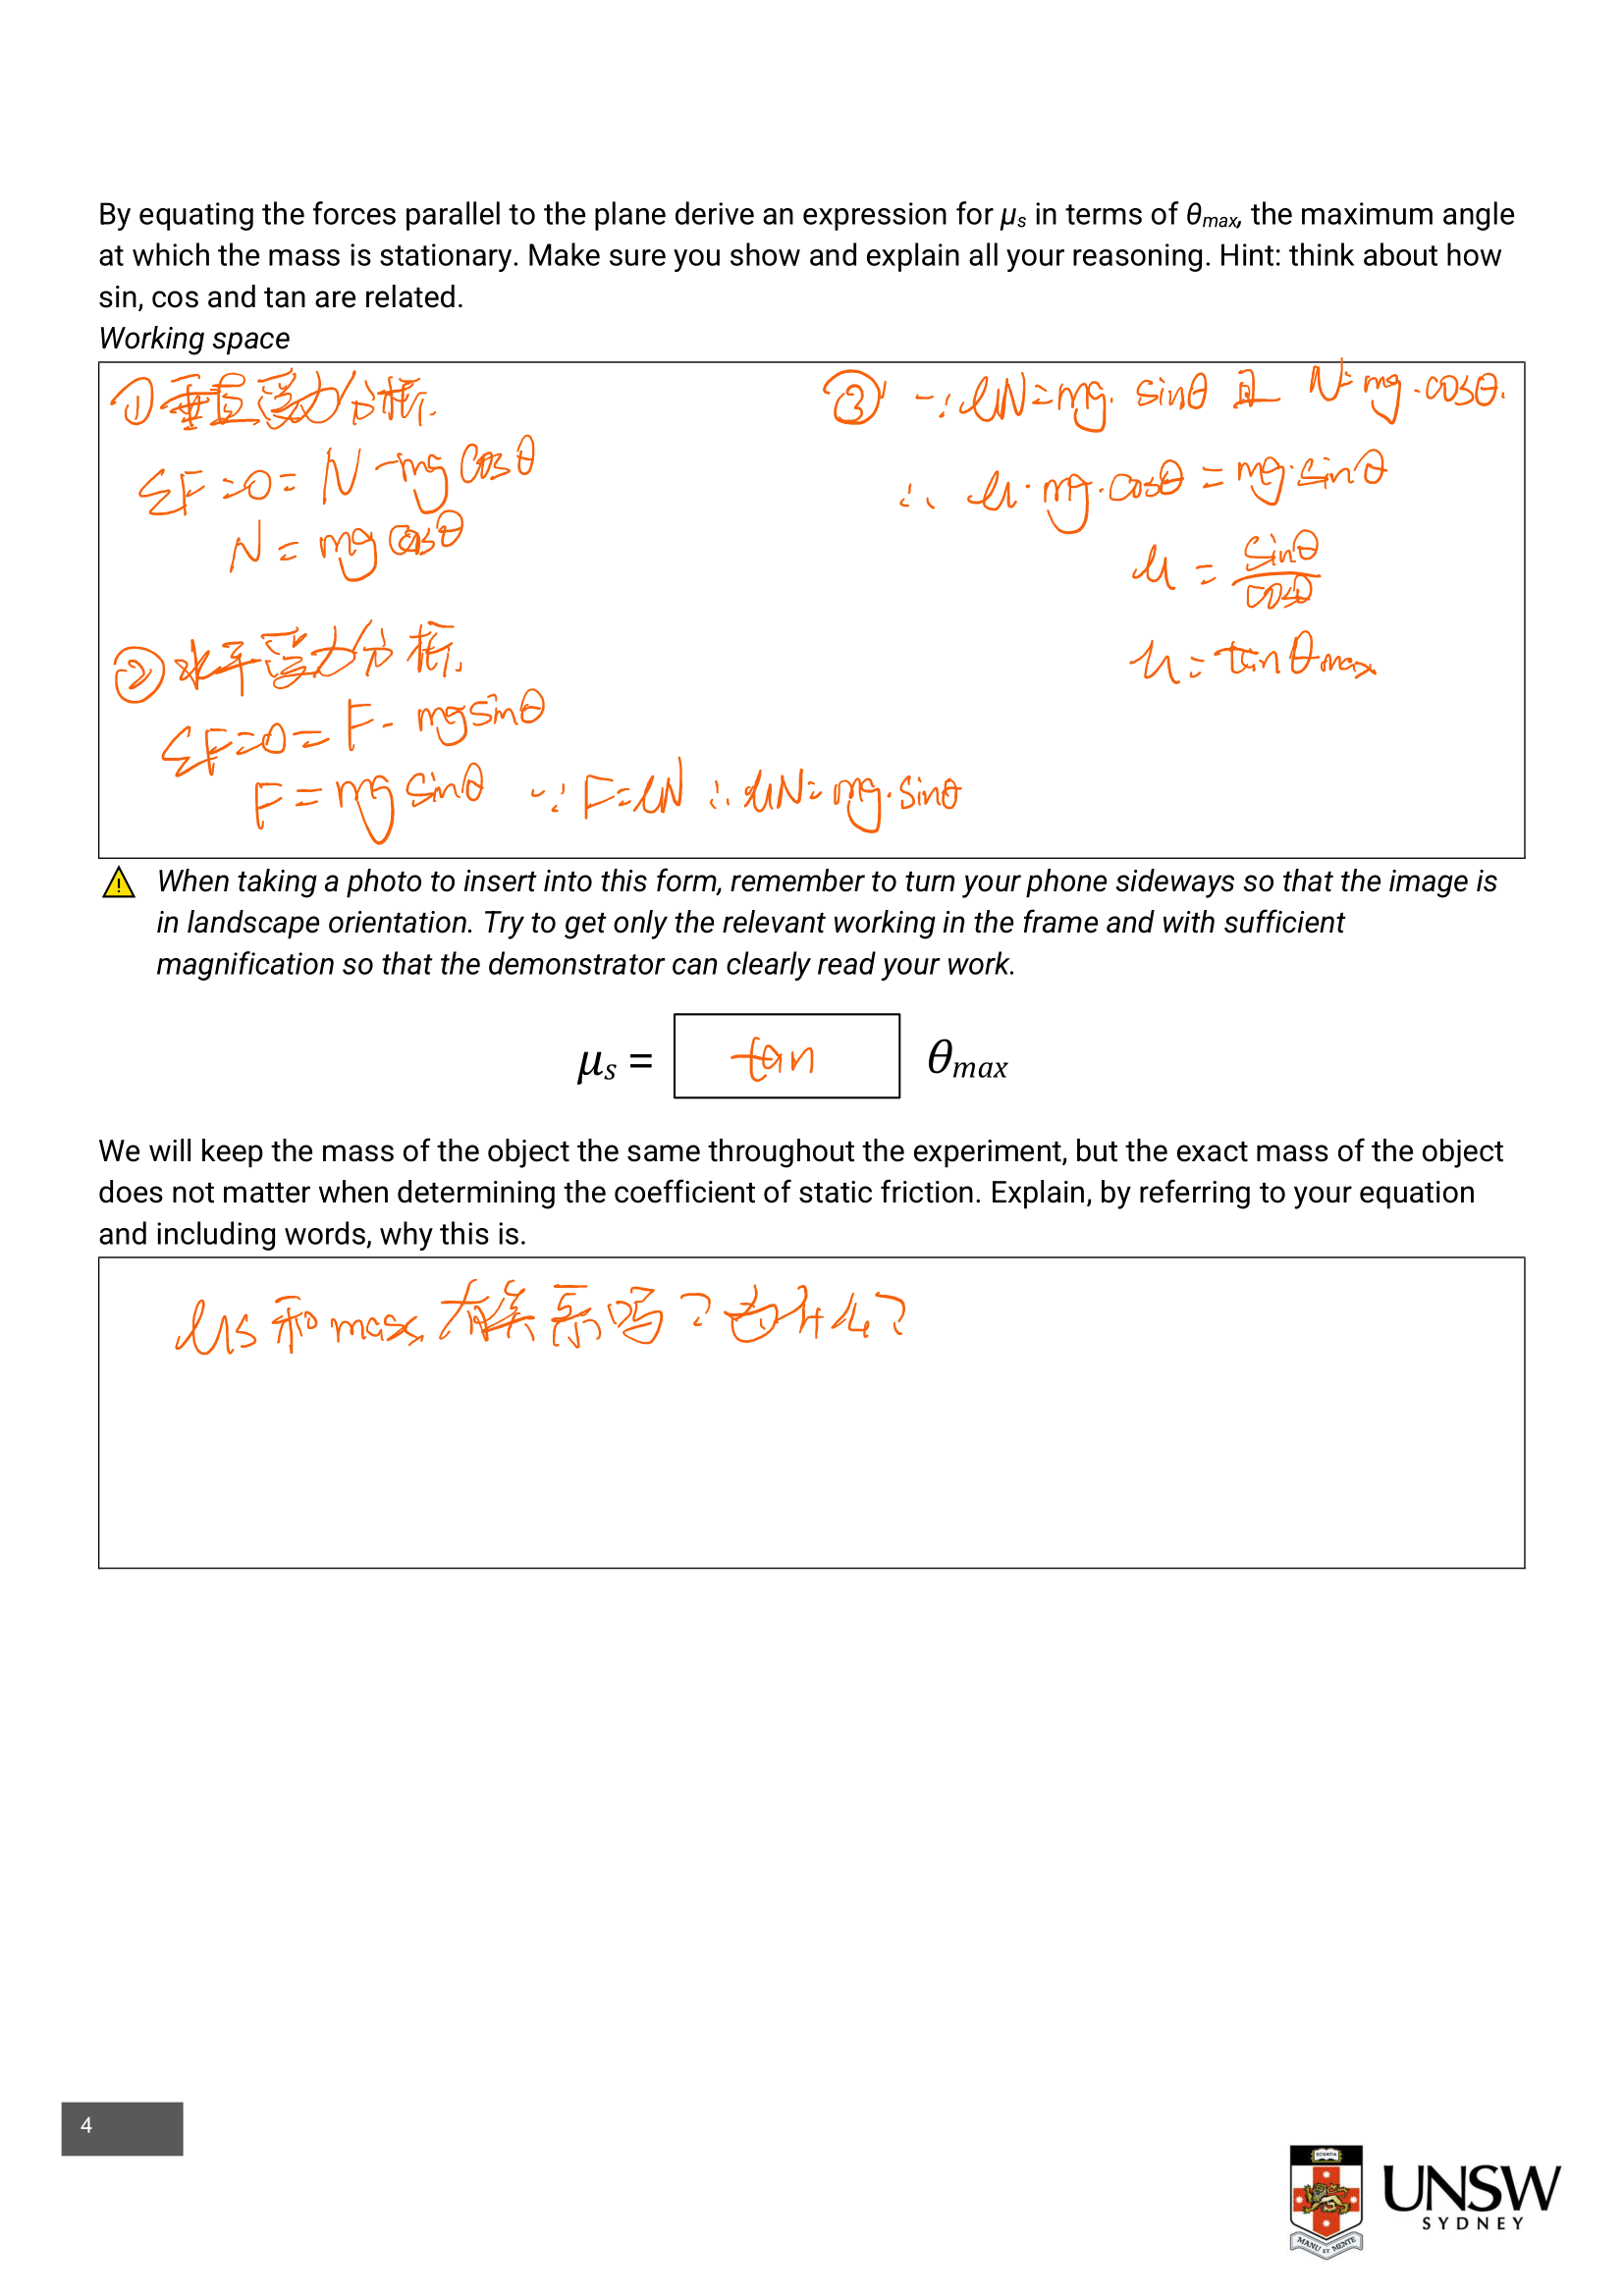 By equating the forces parallel to the plane derive an expression for μs in terms of θmax, the maximum angle
at which the mass is stationary. Make sure you show and explain all your reasoning. Hint: think about how
sin, cos and tan are related.
Working space
① 垂直受力分析.
ΣF=0= N-mg cosθ
N = mg cosθ
② 水平受力分析.
ΣF=0= F- mg sinθ
F = mg sinθ ∵ F=μN ∴ μN= mg·sinθ
③ ∵ μN=mg· sinθ 且 N=mg·cosθ.
∴ μ·mg·cosθ = mg·sinθ
μ = sinθ/cosθ
μ = tanθmax
⚠ When taking a photo to insert into this form, remember to turn your phone sideways so that the image is
in landscape orientation. Try to get only the relevant working in the frame and with sufficient
magnification so that the demonstrator can clearly read your work.
μs = tan θmax
We will keep the mass of the object the same throughout the experiment, but the exact mass of the object
does not matter when determining the coefficient of static friction. Explain, by referring to your equation
and including words, why this is.
μs 和 max 有关系吗?为什么?
4
SCIENTIA
MANU ET MENTE
UNSW
SYDNEY